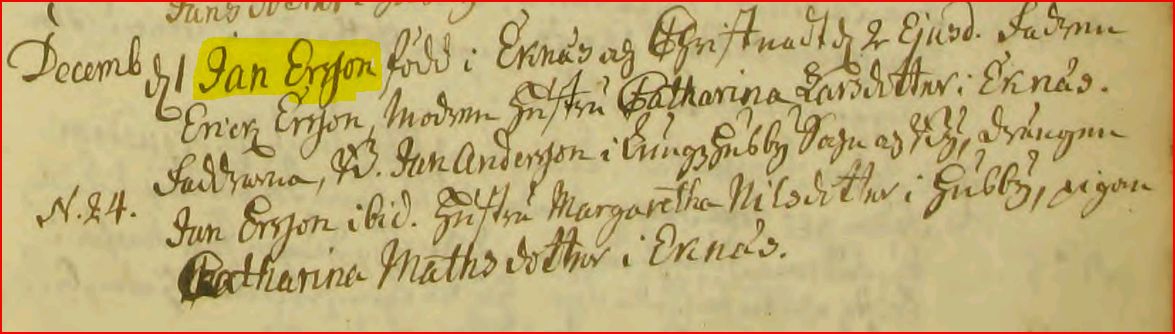 Decemb d 1 Jan Ersson född i Eknäs og Christnadt d 2 Ejusd. Fadren
Erick Ersson, Modren Hustru Catharina Larsdotter i Eknäs.
Faddrarna, Jan Andersson i Kungzhusby Sokn og By, Drängen
N. 24. Jan Ersson ibid. Hustru Margaretha Nilsdotter i Husby, Pigan
Catharina Mathsdotter i Eknäs.